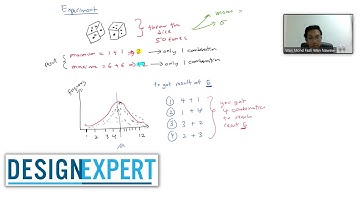 Experiment
throw the
dice
50 times
mean =
σ
minimum = 1 + 1 → 2 → only 1 combination
and
maximum = 6 + 6 → 12 → only 1 combination
to get result of 5
frequency
① 4 + 1
② 1 + 4
③ 3 + 2
④ 2 + 3
you got
4 combination
to reach
result 5
1 2 3 4 12
DESIGNEXPERT
Wan Mohd Fadli Wan Nawawi